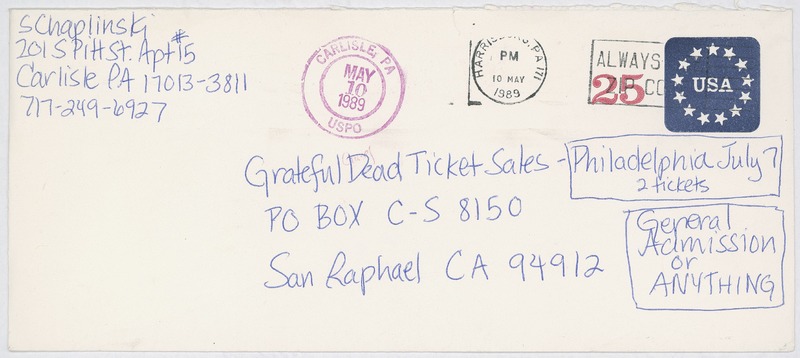 S Chaplinski
201 S Pitt St. Apt #15
Carlisle PA 17013-3811
717-249-6927
CARLISLE, PA
MAY
10
1989
USPO
HARRISBURG, PA 171
PM
10 MAY
1989
ALWAYS
ZIP CO
25
USA
Grateful Dead Ticket Sales - Philadelphia July 7
2 tickets
PO BOX C-S 8150
San Raphael CA 94912
General
Admission
or
ANYTHING